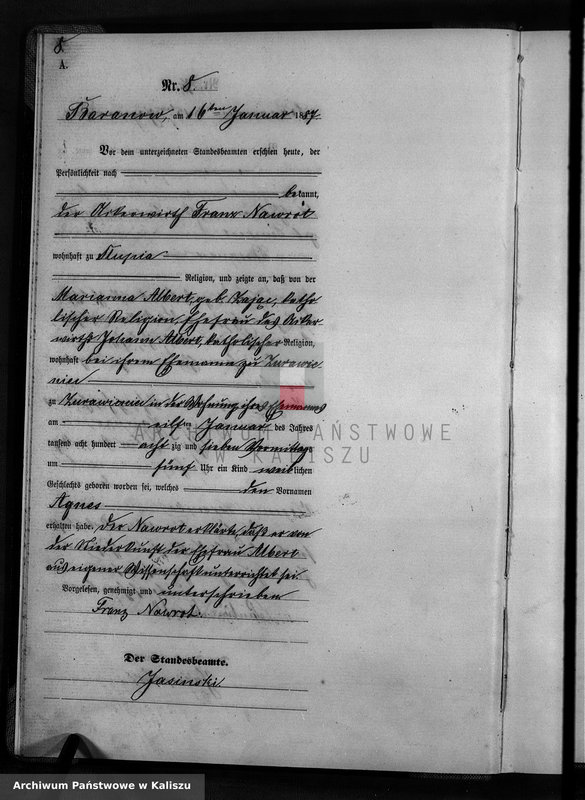 8.
A.
Nr. 8.
Baranow, am 16ten Januar 1887
Vor dem unterzeichneten Standesbeamten erschien heute, der
Persönlichkeit nach
bekannt,
der Ackerwirth Franz Nawrot
wohnhaft zu Slupia
Religion, und zeigte an, daß von der
Marianna Albert, geb. Zajac, katho
lischer Religion, Ehefrau des Acker
wirths Johann Albert, katholischer Religion,
wohnhaft bei ihrem Ehemanne zu Zurawie
niec
zu Zurawieniec in der Wohnung ihres Ehemannes
am eilften Januar des Jahres
tausend acht hundert achtzig und sieben Vormittags
um fünf Uhr ein Kind weiblichen
Geschlechts geboren worden sei, welches den Vornamen
Agnes
erhalten habe. Der Nawrot erklärte, daß er von
der Niederkunft der Ehefrau Albert
aus eigener Wissenschaft unterrichtet sei.
Vorgelesen, genehmigt und unterschrieben
Franz Nawrot.
Der Standesbeamte.
Jasinski
ARCHIWUM PAŃSTWOWE
W KALISZU
Archiwum Państwowe w Kaliszu